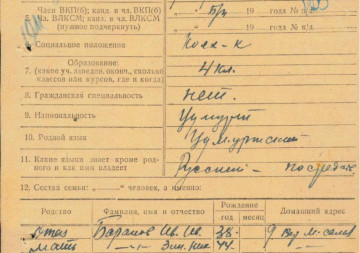 5. Член ВКП(б); канд. в чл. ВКП(б) б/п 19 года № п/б.
чл. ВЛКСМ; канд. в чл. ВЛКСМ 19 года № п/б.
(нужное подчеркнуть)
6. Социальное положение Колх-к
Образование:
7. (какое уч. заведен. оконч., сколько 4 кл.
классов или курсов, где и когда)
8. Гражданская специальность нет.
9. Национальность Удмурт
10. Родной язык Удмуртский
11. Какие языки знает кроме родного и как ими владеет Русский – посредств.
12. Состав семьи: „ “ человек, а именно:
Родство Фамилия, имя и отчество Рождение Домашний адрес
год месяц
отец Баранов Ив. Ив.
мать –"– 44.